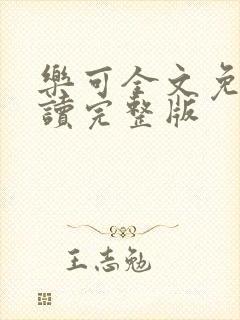 樂可全文免
讀完整版
王志勉